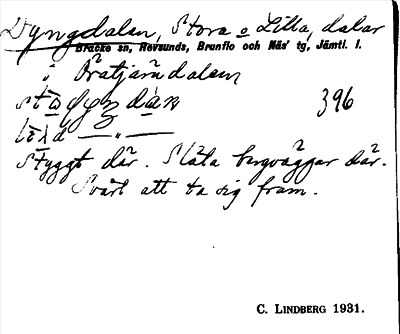 Dyngdalen, Stora o Lilla, dalar
Bräcke sn, Revsunds, Brunflo och Näs' tg, Jämtl. l.
i Öratjärndalen
396
styggt där. Släta bergväggar där.
Svårt att ta sig fram.
C. LINDBERG 1931.